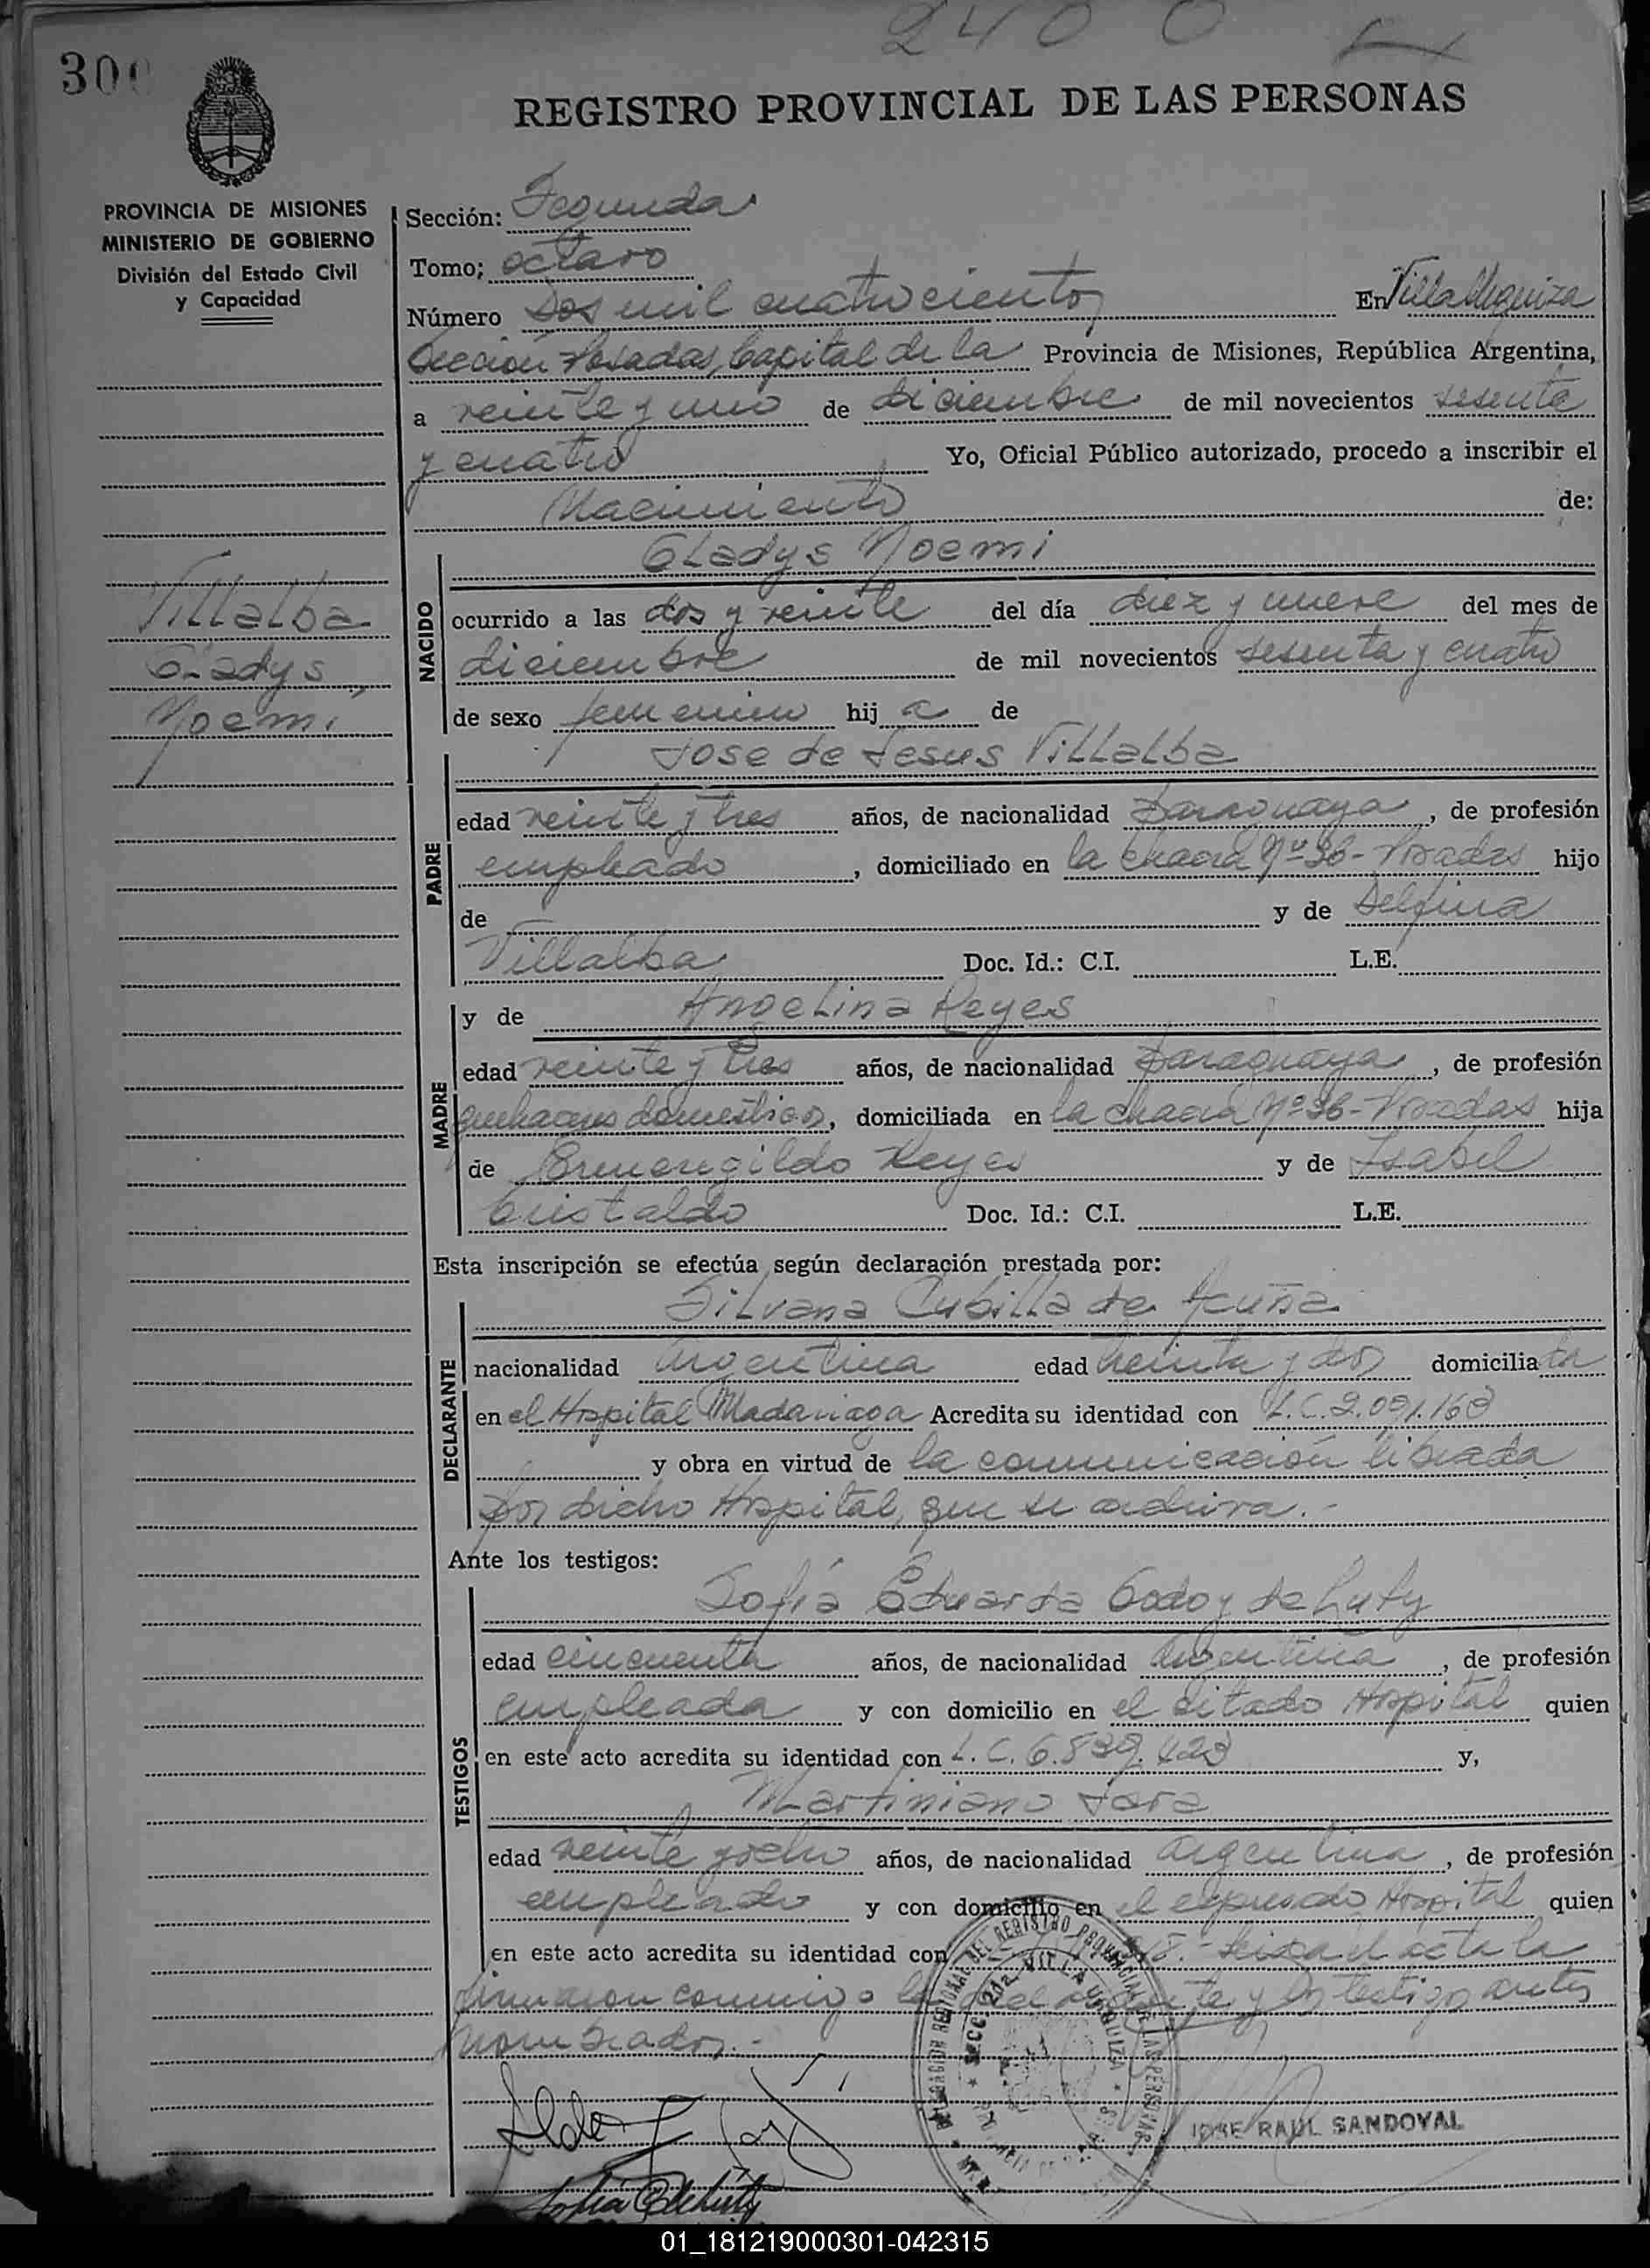 2400
300
REGISTRO PROVINCIAL DE LAS PERSONAS
PROVINCIA DE MISIONES
MINISTERIO DE GOBIERNO
División del Estado Civil
y Capacidad
Villalba
Gladys
Noemi
Sección: Segunda
Tomo; octavo
Número Dos mil cuatrocientos En Villa Urquiza
Sección Posadas, Capital de la Provincia de Misiones, República Argentina,
a veinte y uno de diciembre de mil novecientos sesenta
y cuatro Yo, Oficial Público autorizado, procedo a inscribir el
Nacimiento de:
Gladys Noemi
NACIDO
ocurrido a las dos y veinte del día diez y nueve del mes de
diciembre de mil novecientos sesenta y cuatro
de sexo femenino hija de
Jose de Jesus Villalba
PADRE
edad veinte y tres años, de nacionalidad paraguaya, de profesión
empleado, domiciliado en la chacra Nº 36 - Posadas hijo
de y de Delfina
Villalba Doc. Id.: C.I. L.E.
y de Angelina Reyes
MADRE
edad veinte y tres años, de nacionalidad paraguaya, de profesión
quehaceres domesticos, domiciliada en la chacra Nº 36 - Posadas hija
de Ermenegildo Reyes y de Isabel
Cristaldo Doc. Id.: C.I. L.E.
Esta inscripción se efectúa según declaración prestada por:
Silvana Cubilla de Acuña
DECLARANTE
nacionalidad argentina edad treinta y dos domiciliada
en el Hospital Madariaga Acredita su identidad con L.C. 2.091.163
y obra en virtud de la comunicación librada
por dicho Hospital, que se archiva.-
Ante los testigos:
Sofía Eduarda Godoy de Luty
TESTIGOS
edad cincuenta años, de nacionalidad argentina, de profesión
empleada y con domicilio en el citado Hospital quien
en este acto acredita su identidad con L.C. 6.839.423 y,
Martiniano Jara
edad veinte y ocho años, de nacionalidad argentina, de profesión
empleado y con domicilio en el expresado Hospital quien
en este acto acredita su identidad con Leida el acta la
firmaron conmigo la declarante y los testigos antes
nombrados.-
SECC. 2da. VILLA URQUIZA
JOSE RAUL SANDOVAL
01_181219000301-042315